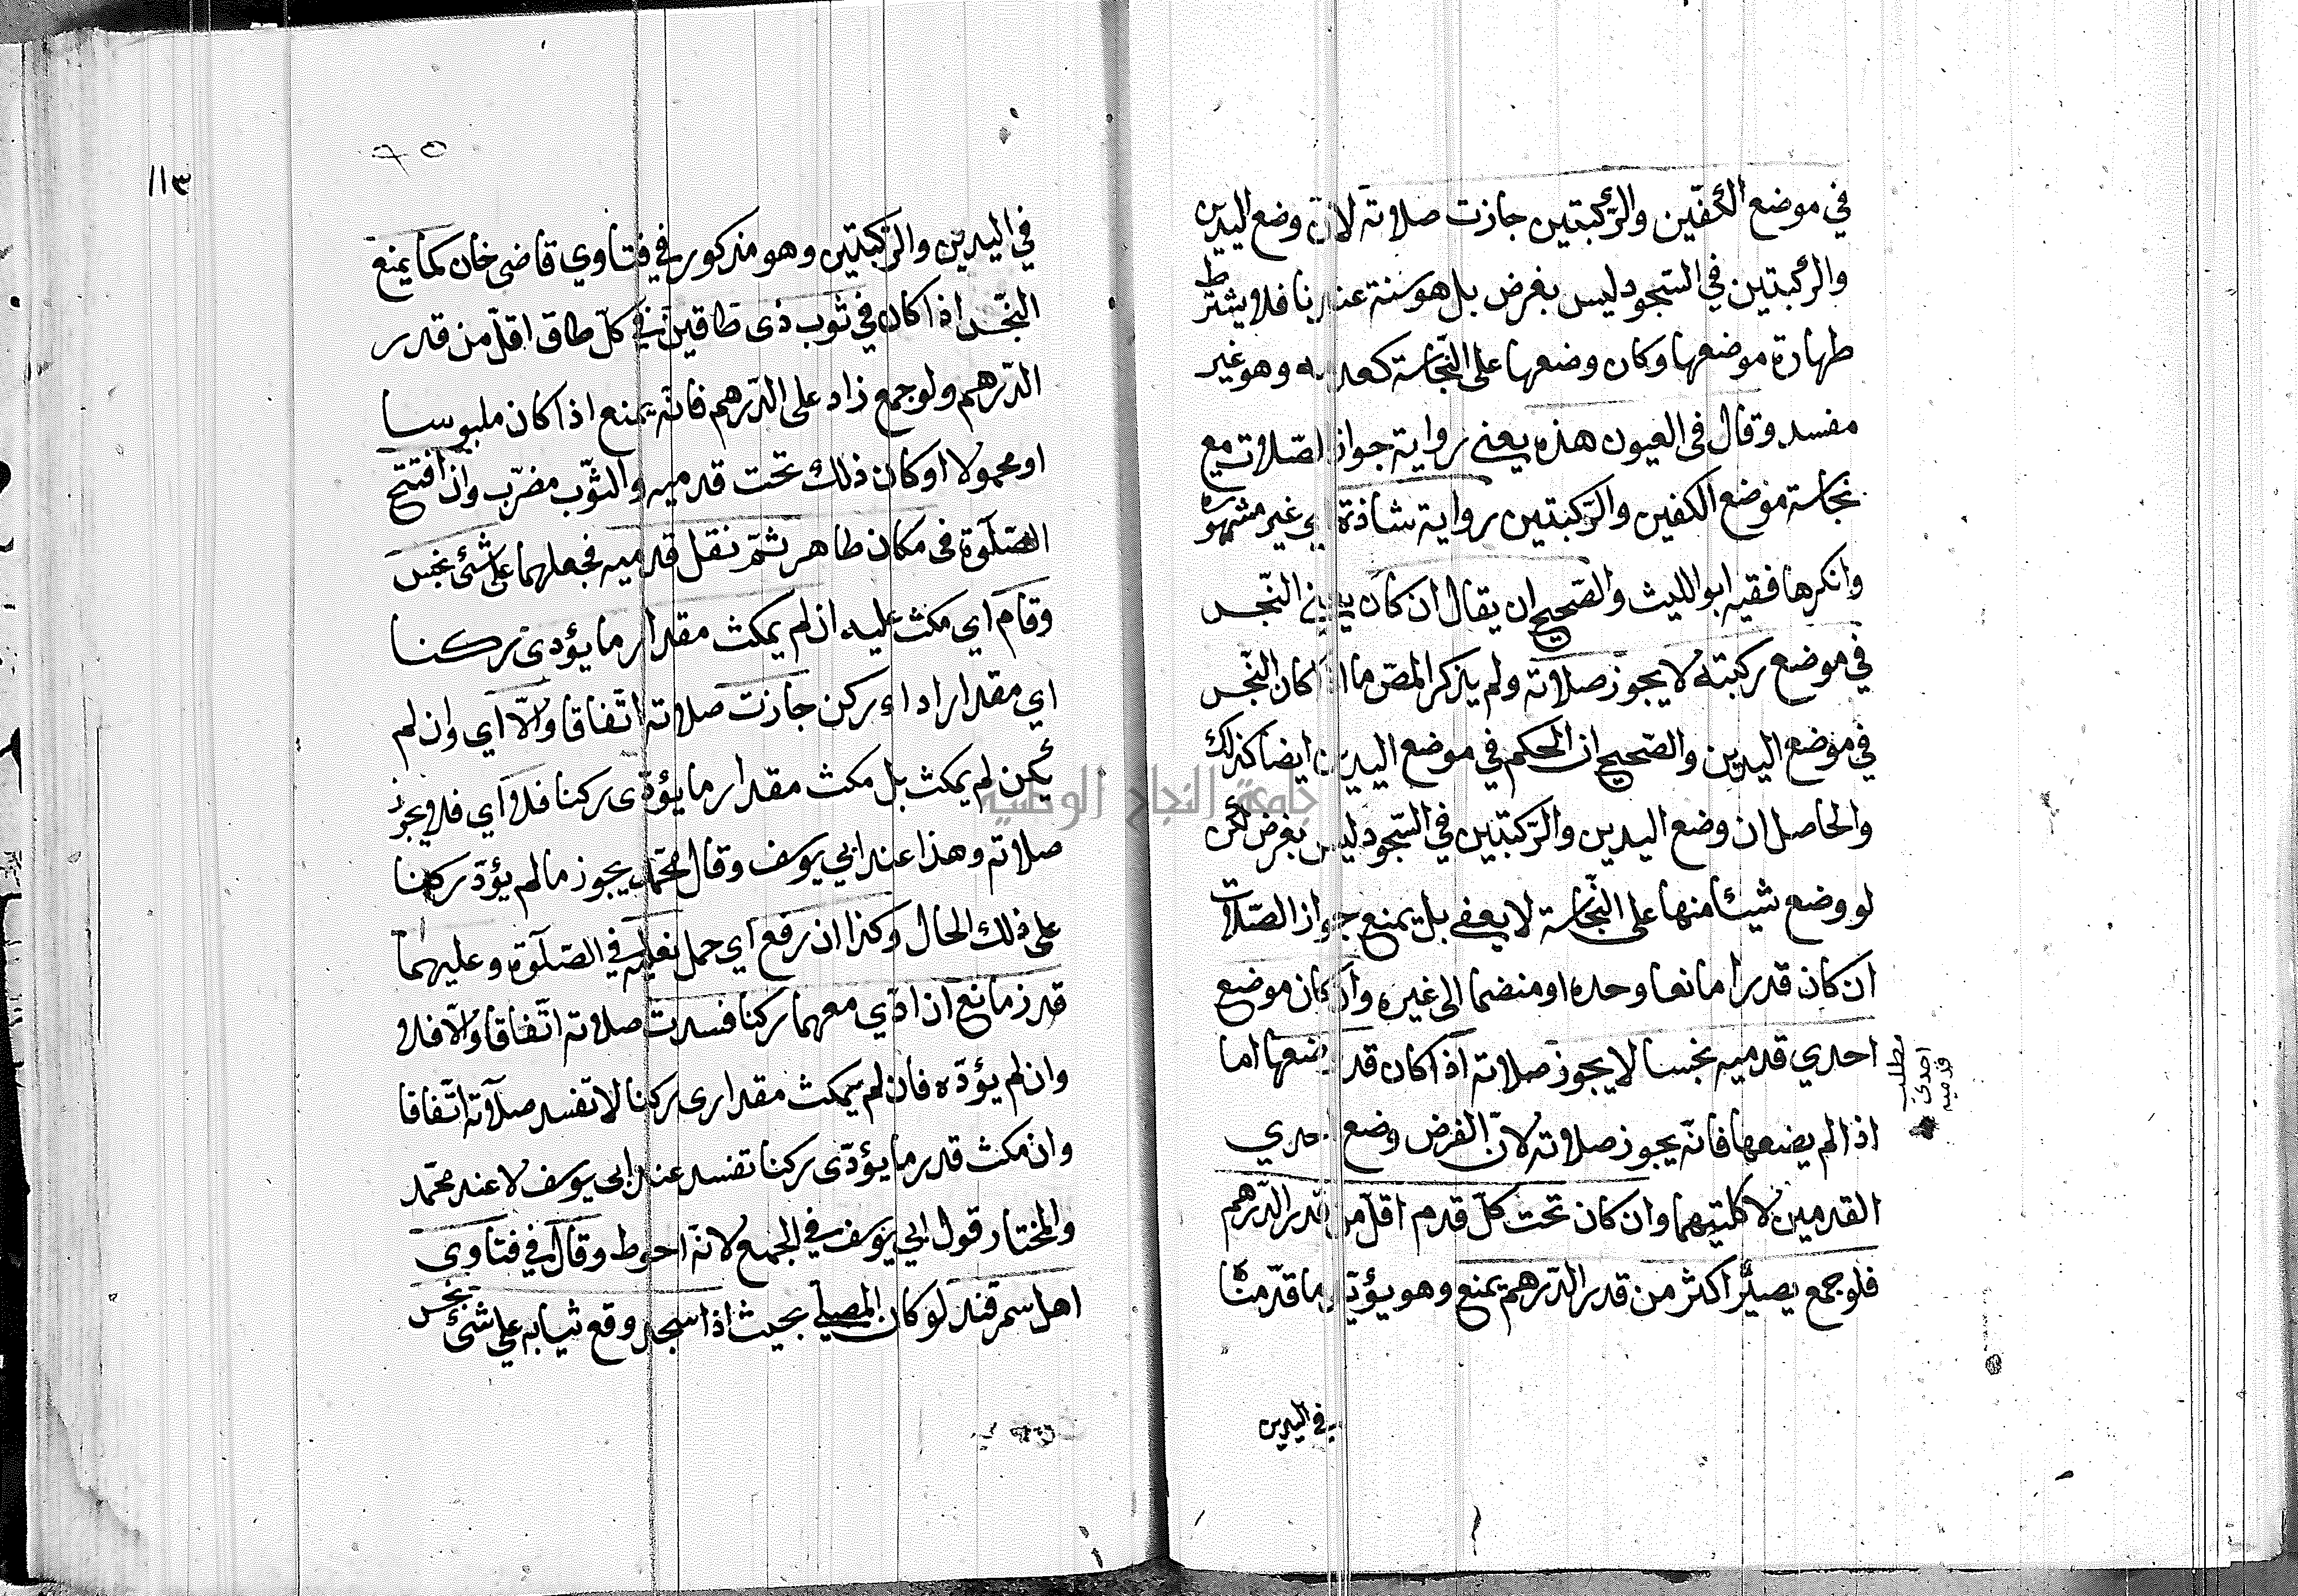 في موضع الكفين والركبتين جازت صلاته لان وضع اليدين
والركبتين في السجود ليس بفرض بل هو سنة عندنا فلا يشترط
طهارة موضعها وكان وضعها على النجاسة كعدمه وهو غير
مفسد وقال في العيون هذه يعني رواية جواز الصلات مع
نجاسة موضع الكفين والركبتين رواية شاذة اي غير مشهورة
وانكرها فقيه ابو الليث والصحيح ان يقال ان كان يعني النجس
في موضع ركبته لا يجوز صلاته ولم يذكر المص ما اذا كان النجس
في موضع اليدين والصحيح ان الحكم في موضع اليدين ايضا كذلك
والحاصل ان وضع اليدين والركبتين في السجود ليس بفرض لكن
لو وضع شيئا منها على النجاسة لا يعفى بل يمنع جواز الصلات
ان كان قدرا مانعا وحده او منضما الى غيره وان كان موضع
احدي قدميه نجسا لا يجوز صلاته اذا كان قد وضعها اما
اذا لم يضعها فانه يجوز صلاته لان الفرض وضع احدي
القدمين لا كلتيهما وان كان تحت كل قدم اقل من قدر الدرهم
فلو جمع يصير اكثر من قدر الدرهم يمنع وهو يؤيد ما قدمنا
مطلب
احدى
قدميه
في اليدين
١١٣
في اليدين والركبتين وهو مذكور في فتاوي قاضى خان كما يمنع
النجس اذا كان في ثوب ذى طاقين في كل طاق اقل من قدر
الدرهم ولو جمع زاد على الدرهم فانه يمنع اذا كان ملبوسا
او محمولا او كان ذلك تحت قدميه والثوب مضرب وان افتتح
الصلوة فى مكان طاهر ثم نقل قدميه فجعلهما على شئ نجس
وقام اي مكث عليه ان لم يمكث مقدار ما يؤدى ركنا
اي مقدار اداء ركن جازت صلاته اتفاقا والا اي وان لم
يكن لم يمكث بل مكث مقدار ما يؤدى ركنا فلا اي فلا يجوز
صلاته وهذا عند ابي يوسف وقال محمد يجوز ما لم يؤد ركنا
على ذلك الحال وكذا ان رفع اي حمل نعليه في الصلوة وعليهما
قذر مانع ان ادي معهما ركنا فسدت صلاته اتفاقا والا فلا
وان لم يؤده فان لم يمكث مقدار ركنا لا تفسد صلاته اتفاقا
وان مكث قدر ما يؤدى ركنا تفسد عند ابى يوسف لا عند محمد
والمختار قول ابي يوسف في الجميع لانه احوط وقال في فتاوى
اهل سمرقند لو كان المصلي بحيث اذا سجد وقع ثيابه على شئ نجس
جامعة النجاح الوطنية